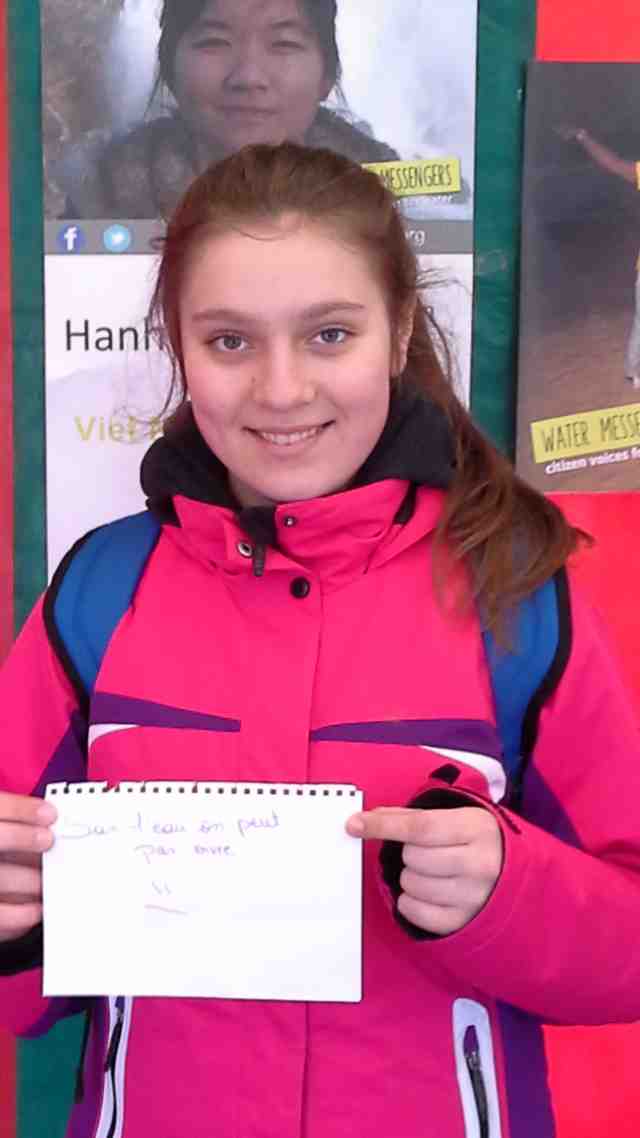 MESSENGERS
Hanh
Viet
WATER MESSE
citizen voices fo
San l'eau on peut
pas vivre
!!